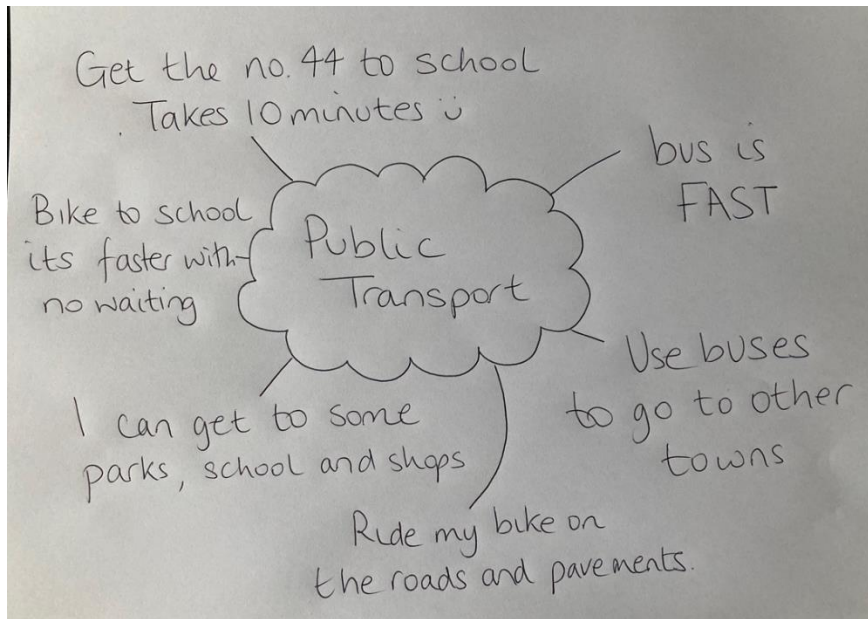 Get the no. 44 to school
Takes 10 minutes
bus is
FAST
Bike to school
its faster with
no waiting
Public
Transport
Use buses
to go to other
towns
I can get to some
parks, school and shops
Ride my bike on
the roads and pavements.